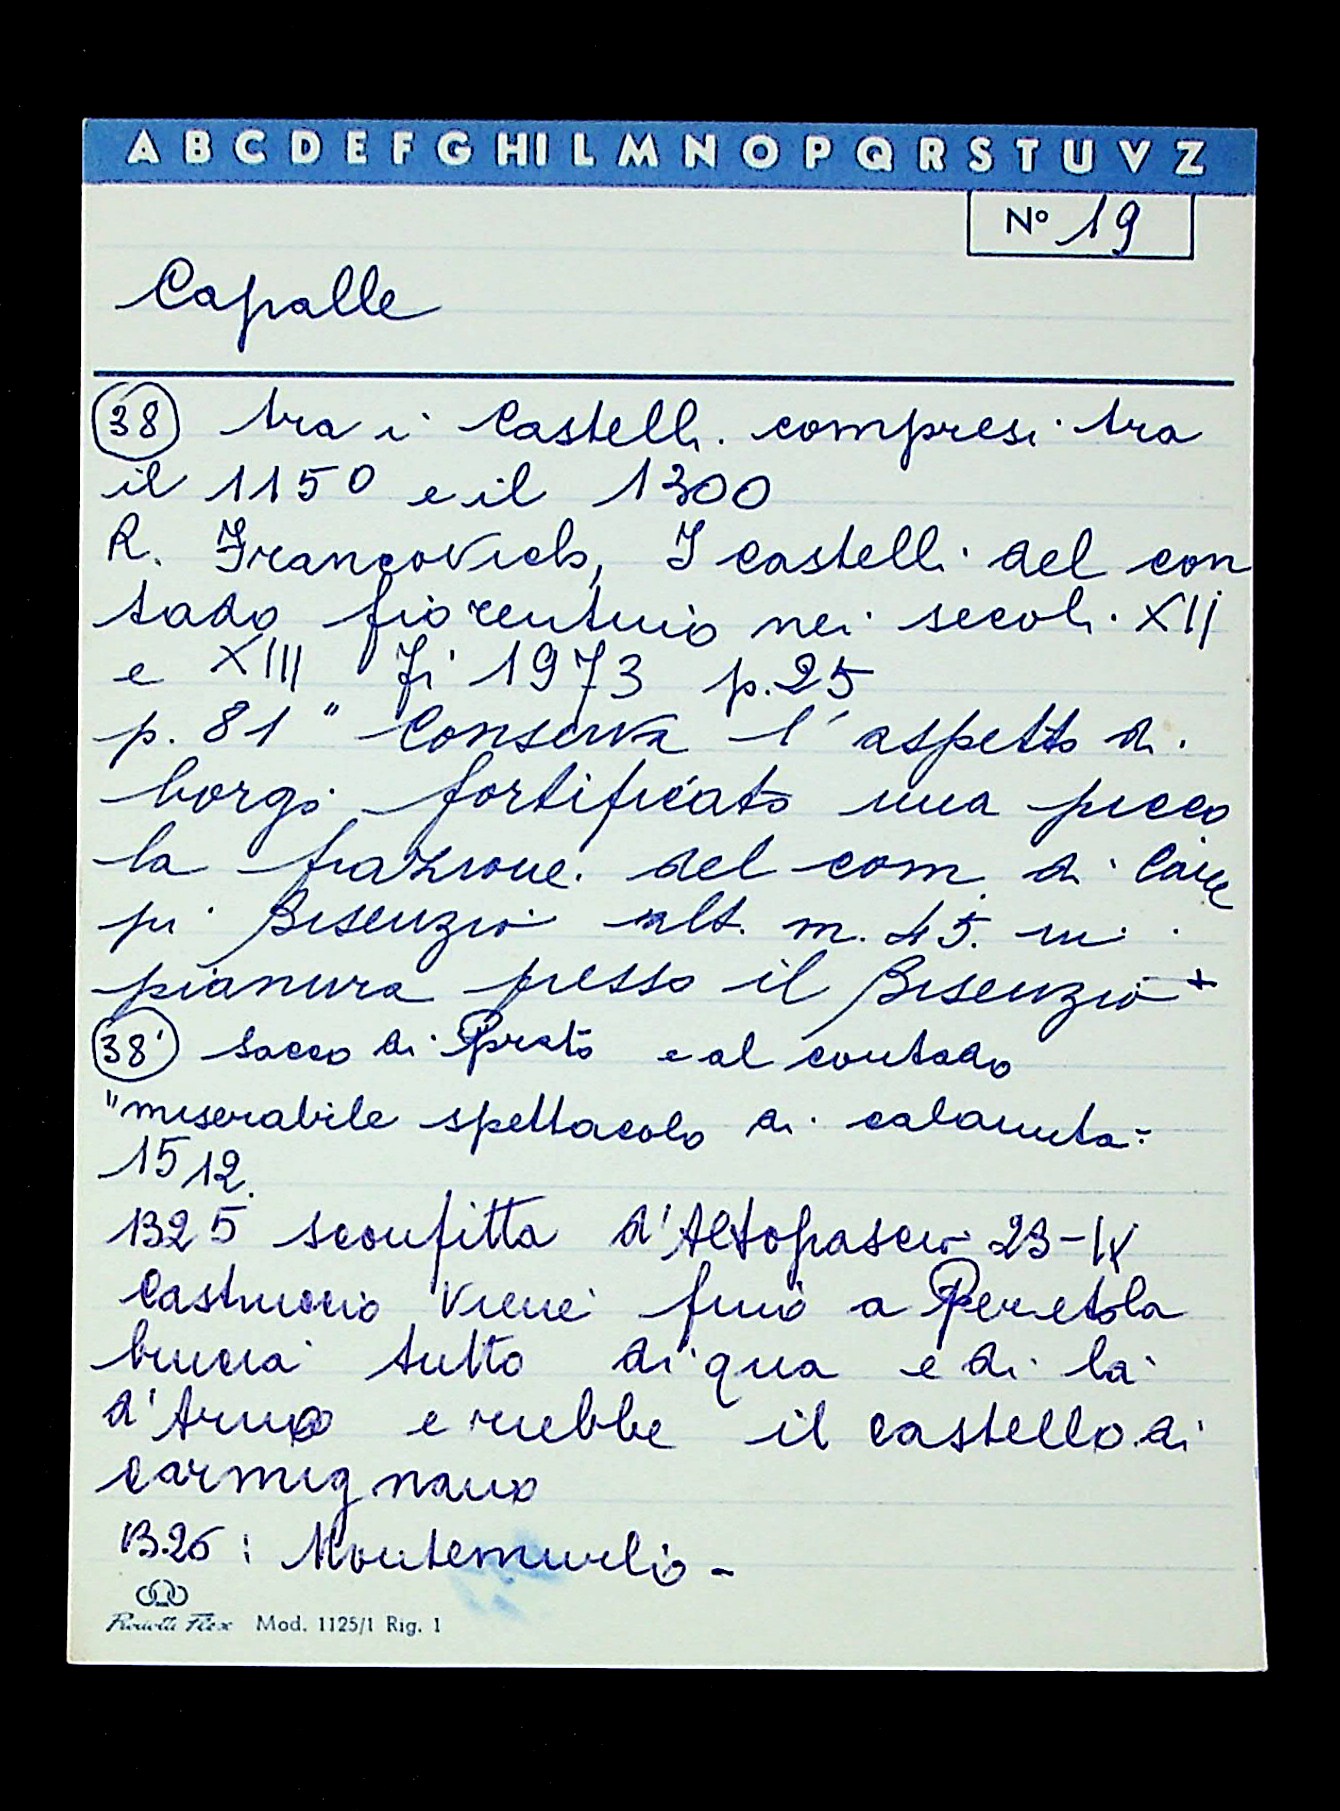 A B C D E F G H I L M N O P Q R S T U V Z
Nº 19
Capalle
38 tra i Castelli compresi tra
il 1150 e il 1300
R. Francovich, I castelli del con
tado fiorentino nei secoli XII
e XIII Fi 1973 p. 25
p. 81 " Conserva l'aspetto di
borgo fortificato una picco
la frazione del com. di Cam
pi Bisenzio alt. m. 45. in
pianura presso il Bisenzio +
38' sacco di Prato e al contado
"miserabile spettacolo di calamità"
1512.
1325 sconfitta d'Altopascio 23-IX
Castruccio viene fino a Peretola
brucia tutto di qua e di là
d'Arno e riebbe il castello di
Carmignano
1326: Montemurlo -
Flex Mod. 1125/1 Rig. 1